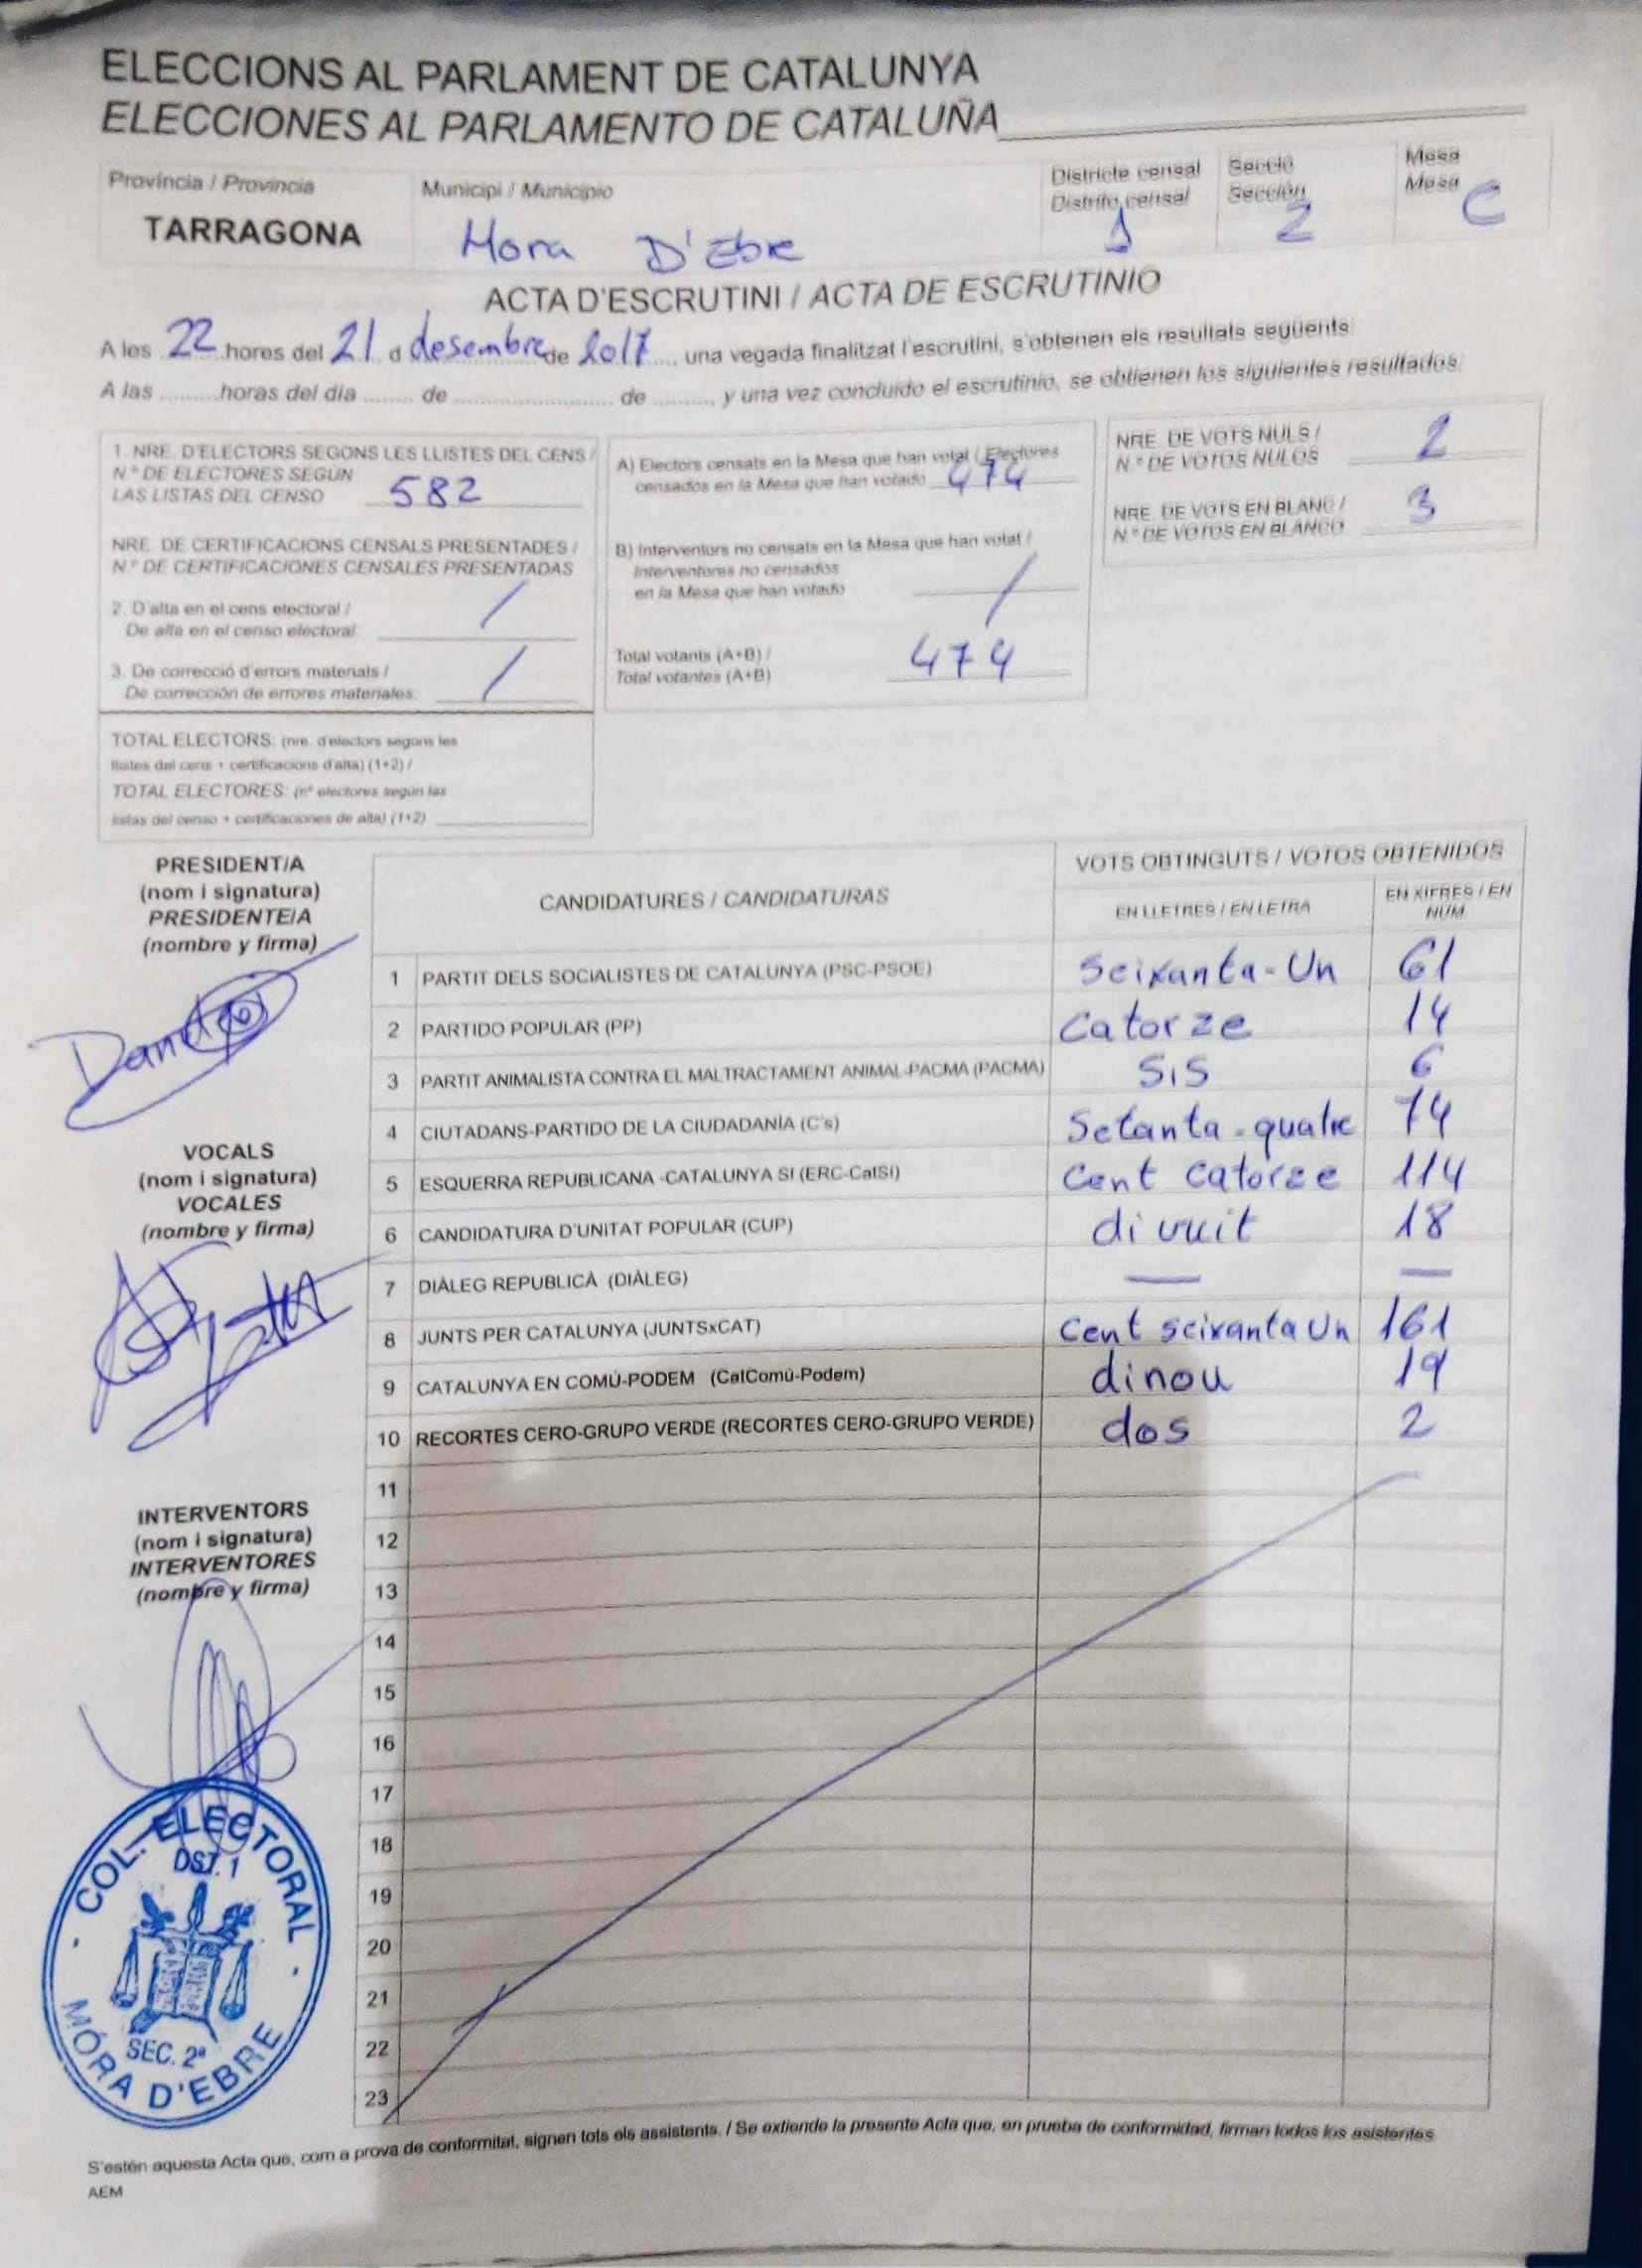 ELECCIONS AL PARLAMENT DE CATALUNYA
ELECCIONES AL PARLAMENTO DE CATALUÑA
Província / Provincia
TARRAGONA
Municipi / Municipio
Mora D'Ebre
Districte censal
Distrito censal
1
Secció
Sección
2
Mesa
Mesa
C
ACTA D'ESCRUTINI / ACTA DE ESCRUTINIO
A les 22 hores del 21 d desembre de 2017, una vegada finalitzat l'escrutini, s'obtenen els resultats següents:
A las ......... horas del día ........ de .......................... de ........., y una vez concluido el escrutinio, se obtienen los siguientes resultados:
1. NRE. D'ELECTORS SEGONS LES LLISTES DEL CENS /
N.º DE ELECTORES SEGÚN
LAS LISTAS DEL CENSO 582
NRE. DE CERTIFICACIONS CENSALS PRESENTADES /
N.º DE CERTIFICACIONES CENSALES PRESENTADAS
2. D'alta en el cens electoral /
De alta en el censo electoral: /
3. De correcció d'errors materials /
De corrección de errores materiales: /
TOTAL ELECTORS: (nre. d'electors segons les
llistes del cens + certificacions d'alta) (1+2) /
TOTAL ELECTORES: (nº electores según las
listas del censo + certificaciones de alta) (1+2)
A) Electors censats en la Mesa que han votat / Electores
censados en la Mesa que han votado 474
B) Interventors no censats en la Mesa que han votat /
Interventores no censados
en la Mesa que han votado /
Total votants (A+B) /
Total votantes (A+B) 474
NRE. DE VOTS NULS /
N.º DE VOTOS NULOS 2
NRE. DE VOTS EN BLANC /
N.º DE VOTOS EN BLANCO 3
PRESIDENT/A
(nom i signatura)
PRESIDENTE/A
(nombre y firma)
VOCALS
(nom i signatura)
VOCALES
(nombre y firma)
INTERVENTORS
(nom i signatura)
INTERVENTORES
(nombre y firma)
COL. ELECTORAL
DST. 1
SEC. 2ª
MÓRA D'EBRE
CANDIDATURES / CANDIDATURAS
VOTS OBTINGUTS / VOTOS OBTENIDOS
EN LLETRES / EN LETRA
EN XIFRES / EN NÚM.
1 PARTIT DELS SOCIALISTES DE CATALUNYA (PSC-PSOE) Seixanta-Un 61
2 PARTIDO POPULAR (PP) Catorze 14
3 PARTIT ANIMALISTA CONTRA EL MALTRACTAMENT ANIMAL-PACMA (PACMA) Sis 6
4 CIUTADANS-PARTIDO DE LA CIUDADANÍA (C's) Setanta-quatre 74
5 ESQUERRA REPUBLICANA -CATALUNYA SÍ (ERC-CatSí) Cent Catorze 114
6 CANDIDATURA D'UNITAT POPULAR (CUP) divuit 18
7 DIÀLEG REPUBLICÀ (DIÀLEG) — —
8 JUNTS PER CATALUNYA (JUNTSxCAT) Cent seixanta Un 161
9 CATALUNYA EN COMÚ-PODEM (CatComú-Podem) dinou 19
10 RECORTES CERO-GRUPO VERDE (RECORTES CERO-GRUPO VERDE) dos 2
11
12
13
14
15
16
17
18
19
20
21
22
23
S'estén aquesta Acta que, com a prova de conformitat, signen tots els assistents. / Se extiende la presente Acta que, en prueba de conformidad, firman todos los asistentes.
AEM